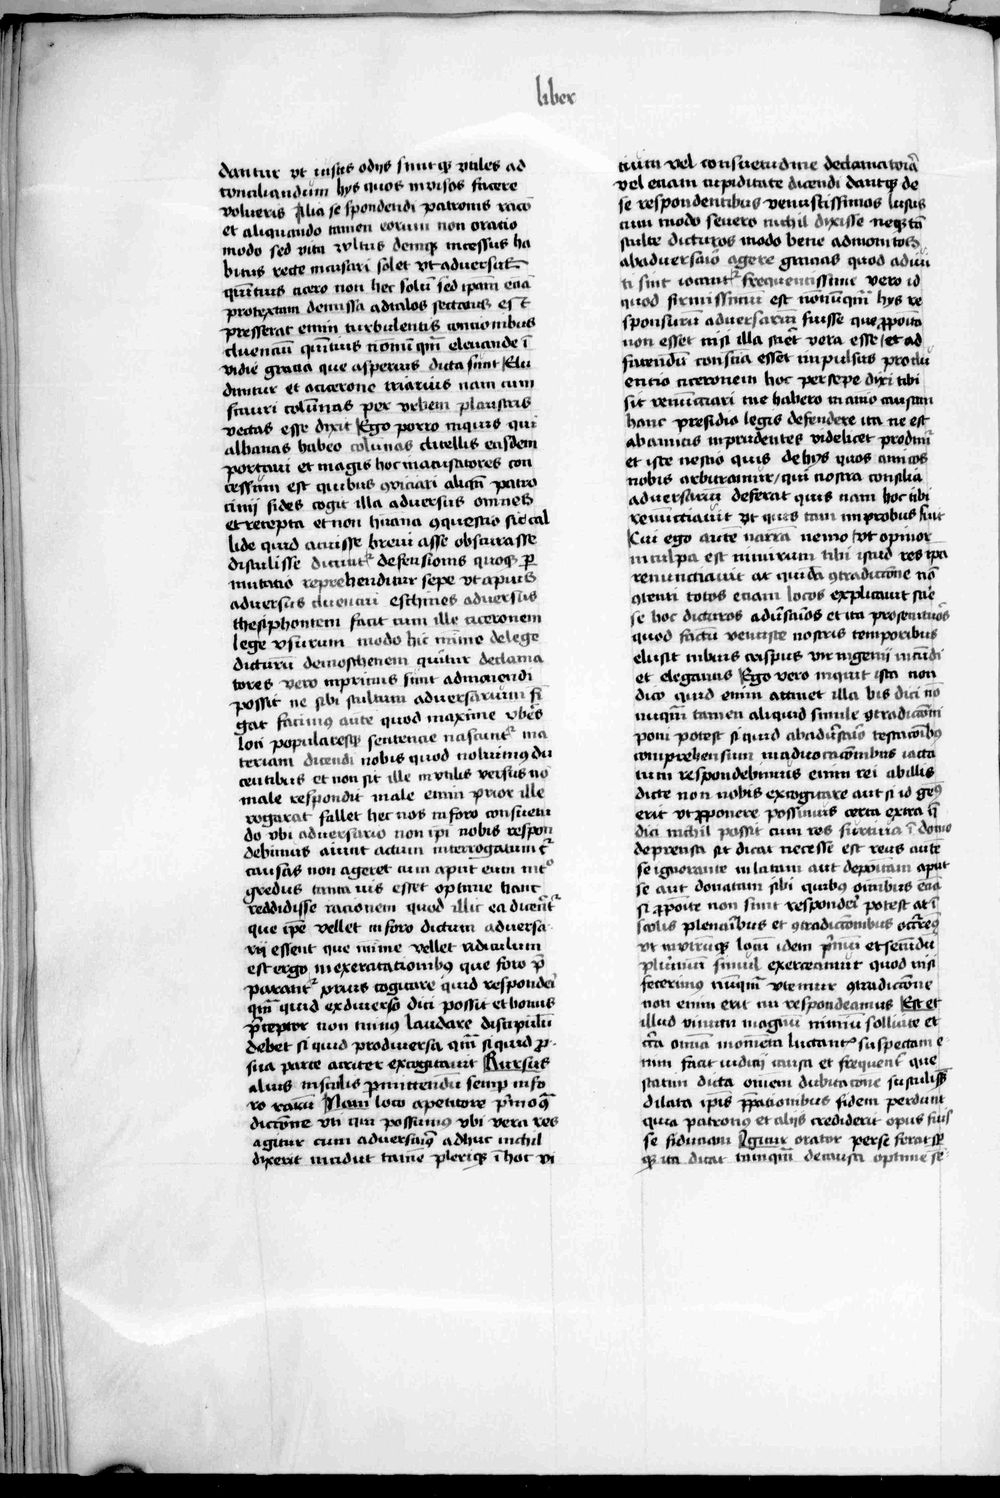 liber
dantur ut iustis odiis sint quoque utiles ad
conciliandum hys quos invisos facere
volueris Alia se spondendi patronis racō
et aliquando tamen eorum non oratio
modo sed vita vultus denique incessus ha
bitus recte incusari solet ut adversus
quintius cicero non hec solū sed ipam etiā
protextam demissa ad talos
presserat enim turbulentis contionibus
cluenciū quintius nōnūqm̄ elevande ī
vidie gratia que asperius dicta sunt Elu
duntur et a cicerone triarius nam cum
scauri columnas per urbem plaustris
vectas esse dixit Ego porro inquit qui
albanas habeo colunas clitellis easdem
portavi et magis hoc in accusatores con
cessum est quibus 9viciari aliqn̄ patro
cinij fides cogit illa adversus omnes
et recepta et non hūana 9questio si cal
lide quid acuisse brevi asse obscurasse
distulisse dicunt defensionis quoque per
mutatio reprehenditur sepe ut apius
adversus cluencii eschines adversus
thesiphontem facit cum ille ciceronem
lege usurum modo hic mīme de lege
dicturū demoschenem quītur declama
tores vero inprimis sunt admonendi
possit ne sibi stultum adversarium fī
gat facimus autē quod maxime
loci popularesque sentencie nascunt ma
teriam dicendi nobis quod nolumus du
centibus et non sit ille inutilis versus nō
male respondit male enim prior ille
rogarat fallet hec nos in foro consuetu
do ubi adversario non ipi nobis respon
debimus aiunt actum interrogatum
causas non ageret cum aput eum
gredus tanta vis esset optime hanc
reddidisse racionem quod illic ea dicerent
que ipe vellet in foro dictum adversa
rij essent que mīme vellet ridiculum
est ergo in exercitationibus que foro p̄
parant prius cogitare quid responderi
qm̄ quid ex diverso dici possit et bonus
p̄ceptor non minus laudare discipulū
debet si quid pro diversa qm̄ si quid p
sua parte acriter excogitavit Rursus
alius in scolis p̄mittendū semp in fo
ro rarū Nam loco a petitore p̄mo 9t̄
dictōne uti qm possumus ubi vera res
agitur cum adversariq adhuc nichil
dixerit incidut tamē plerique ī hoc vi
cium vel consuetudine declamatoriā
vel etiam cupiditate dicendi dantque de
se respondentibus venustissimos lusus
cum modo severo nichil dixisse neque tā
stulte dicturos modo bene admonitos
ab adversario agere gracias quod adiu
ti sint iocant frequentissime vero id
quod firmissimū est nōnūqm̄ hys re
sponsurū adversarium fuisse que p̄poita
non esset nisi illa sciret vera esse et ad
fatendū conscia esset impulsus pro clu
encio ciceronem hoc persepe dixi tibi
sit renunciari me habere in aīo causam
hanc presidio legis defendere ita ne est
ab amicis inprudentes videlicet prodīm
et iste nescio quis de hys quos amicos
nobis arbitramur qui nostra consilia
adversariū deferat quis nam hoc tibi
renunciavit ut quis tam improbus fuit
Cui ego autē narra nemo ut opinor
in culpa est nimirum tibi istud res ipa
renunciavit at quidā 9tradictōne nō
9tenti totos etiam locos explicavit scire
se hoc dicturos adversarios et ita prosecuturos
quod factū venuste nostris temporibus
elusit vibius crispus vir ingenij iucūdi
et elegantis Ego vero inquit ista non
dico quid enim attinet illa bis dici nō
nuqm̄ tamen aliquid simile 9tradictōni
poni potest si quid ab adversario testacōibus
comprehensum in advocacōnibus iacta
tum respondebimus enim rei ab illis
dicte non nobis excogitate aut si id gen9
erit ut p̄ponere possimus certa extra q̄
dici nichil possit cum res furtiva ī domo
deprensa sit dicat necesse est reus autē
se ignorante inlatam aut depoitam aput
se aut donatam sibi quibus omnibus etiā
si p̄poite non sunt responderi potest at ī
scolis plenaribus et 9tradictōnibus
ut in utrumque locū idem p̄mū et secūdū
plurimū simul exerceamur quod nisi
fecerimus nūqm̄ utemur 9tradictōne
non enim erit cui respondeamus Est et
illud vicium magnū nimiū solliciti et
c̄ca omīa momenta luctantis suspectam e
nim facit iudicij causā et frequenter que
statim dicta omem dubitacōne sustulisset
dilata ipis p̄pacionibus fidem perdunt
quia patronus et aliis crediderit opus fuis
se fiduciam Igitur orator pre se ferat semp
que ita dicat tamqm̄ de causa optime se